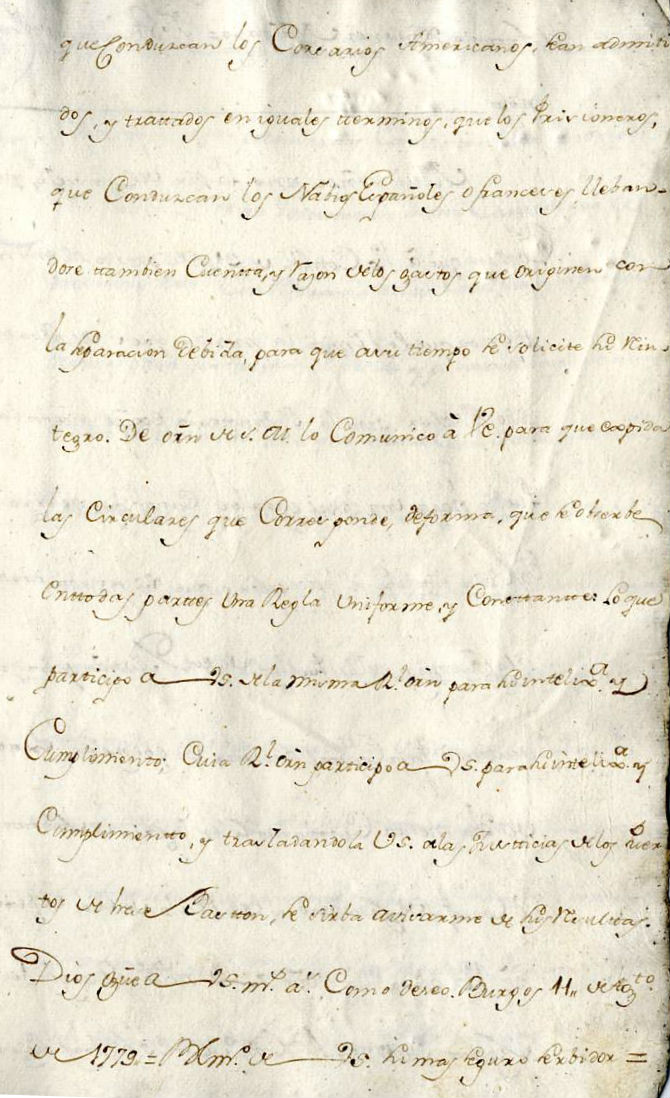 que Conduzcan los Corsarios Americanos, sean admiti
dos, y trattados en iguales tterminos, que los Prisioneros,
que Conduzcan los Españoles o franceses, lleban=
dose ttambien Cuentta, y Razon de los gastos que originen con
la separacion debida, para que a su tiempo se solicite su Rein-
tegro. De orñ de S. M. lo Comunico à Ve. para que expida
las Circulares que Corresponde, de forma, que se observe
en ttodas parttes Una Regla Uniforme, y Consttantte: Lo que
participo a Vs. de la misma Rl. orñ para su intelixa. y
Cumplimiento; Cuia Rl. orñ participo a Vs. para su intelixa. y
Cumplimientto, y trasladandola Vs. a las Justticias de los Puer
tos de ese Bastton, se sirba avisarme de sus Resultas.
Dios gũe a Vs. ms. as. Como deseo. Burgos 11,, de Agto.
de 1779 = de Vs. su mas seguro serbidor =